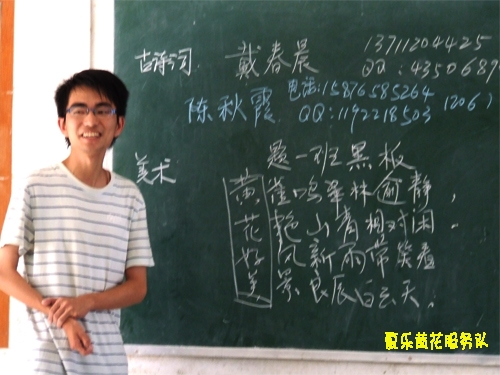 古诗词 戴春晨 13711204425
QQ:4350689
陈秋霞 电话:15876585264 (206)
QQ:1192218503
美术
题一班黑板
黄雀鸣翠林静,
花艳山青相对闲.
好风新雨带笑看
美景良辰白云天.
夏乐黄花服务队